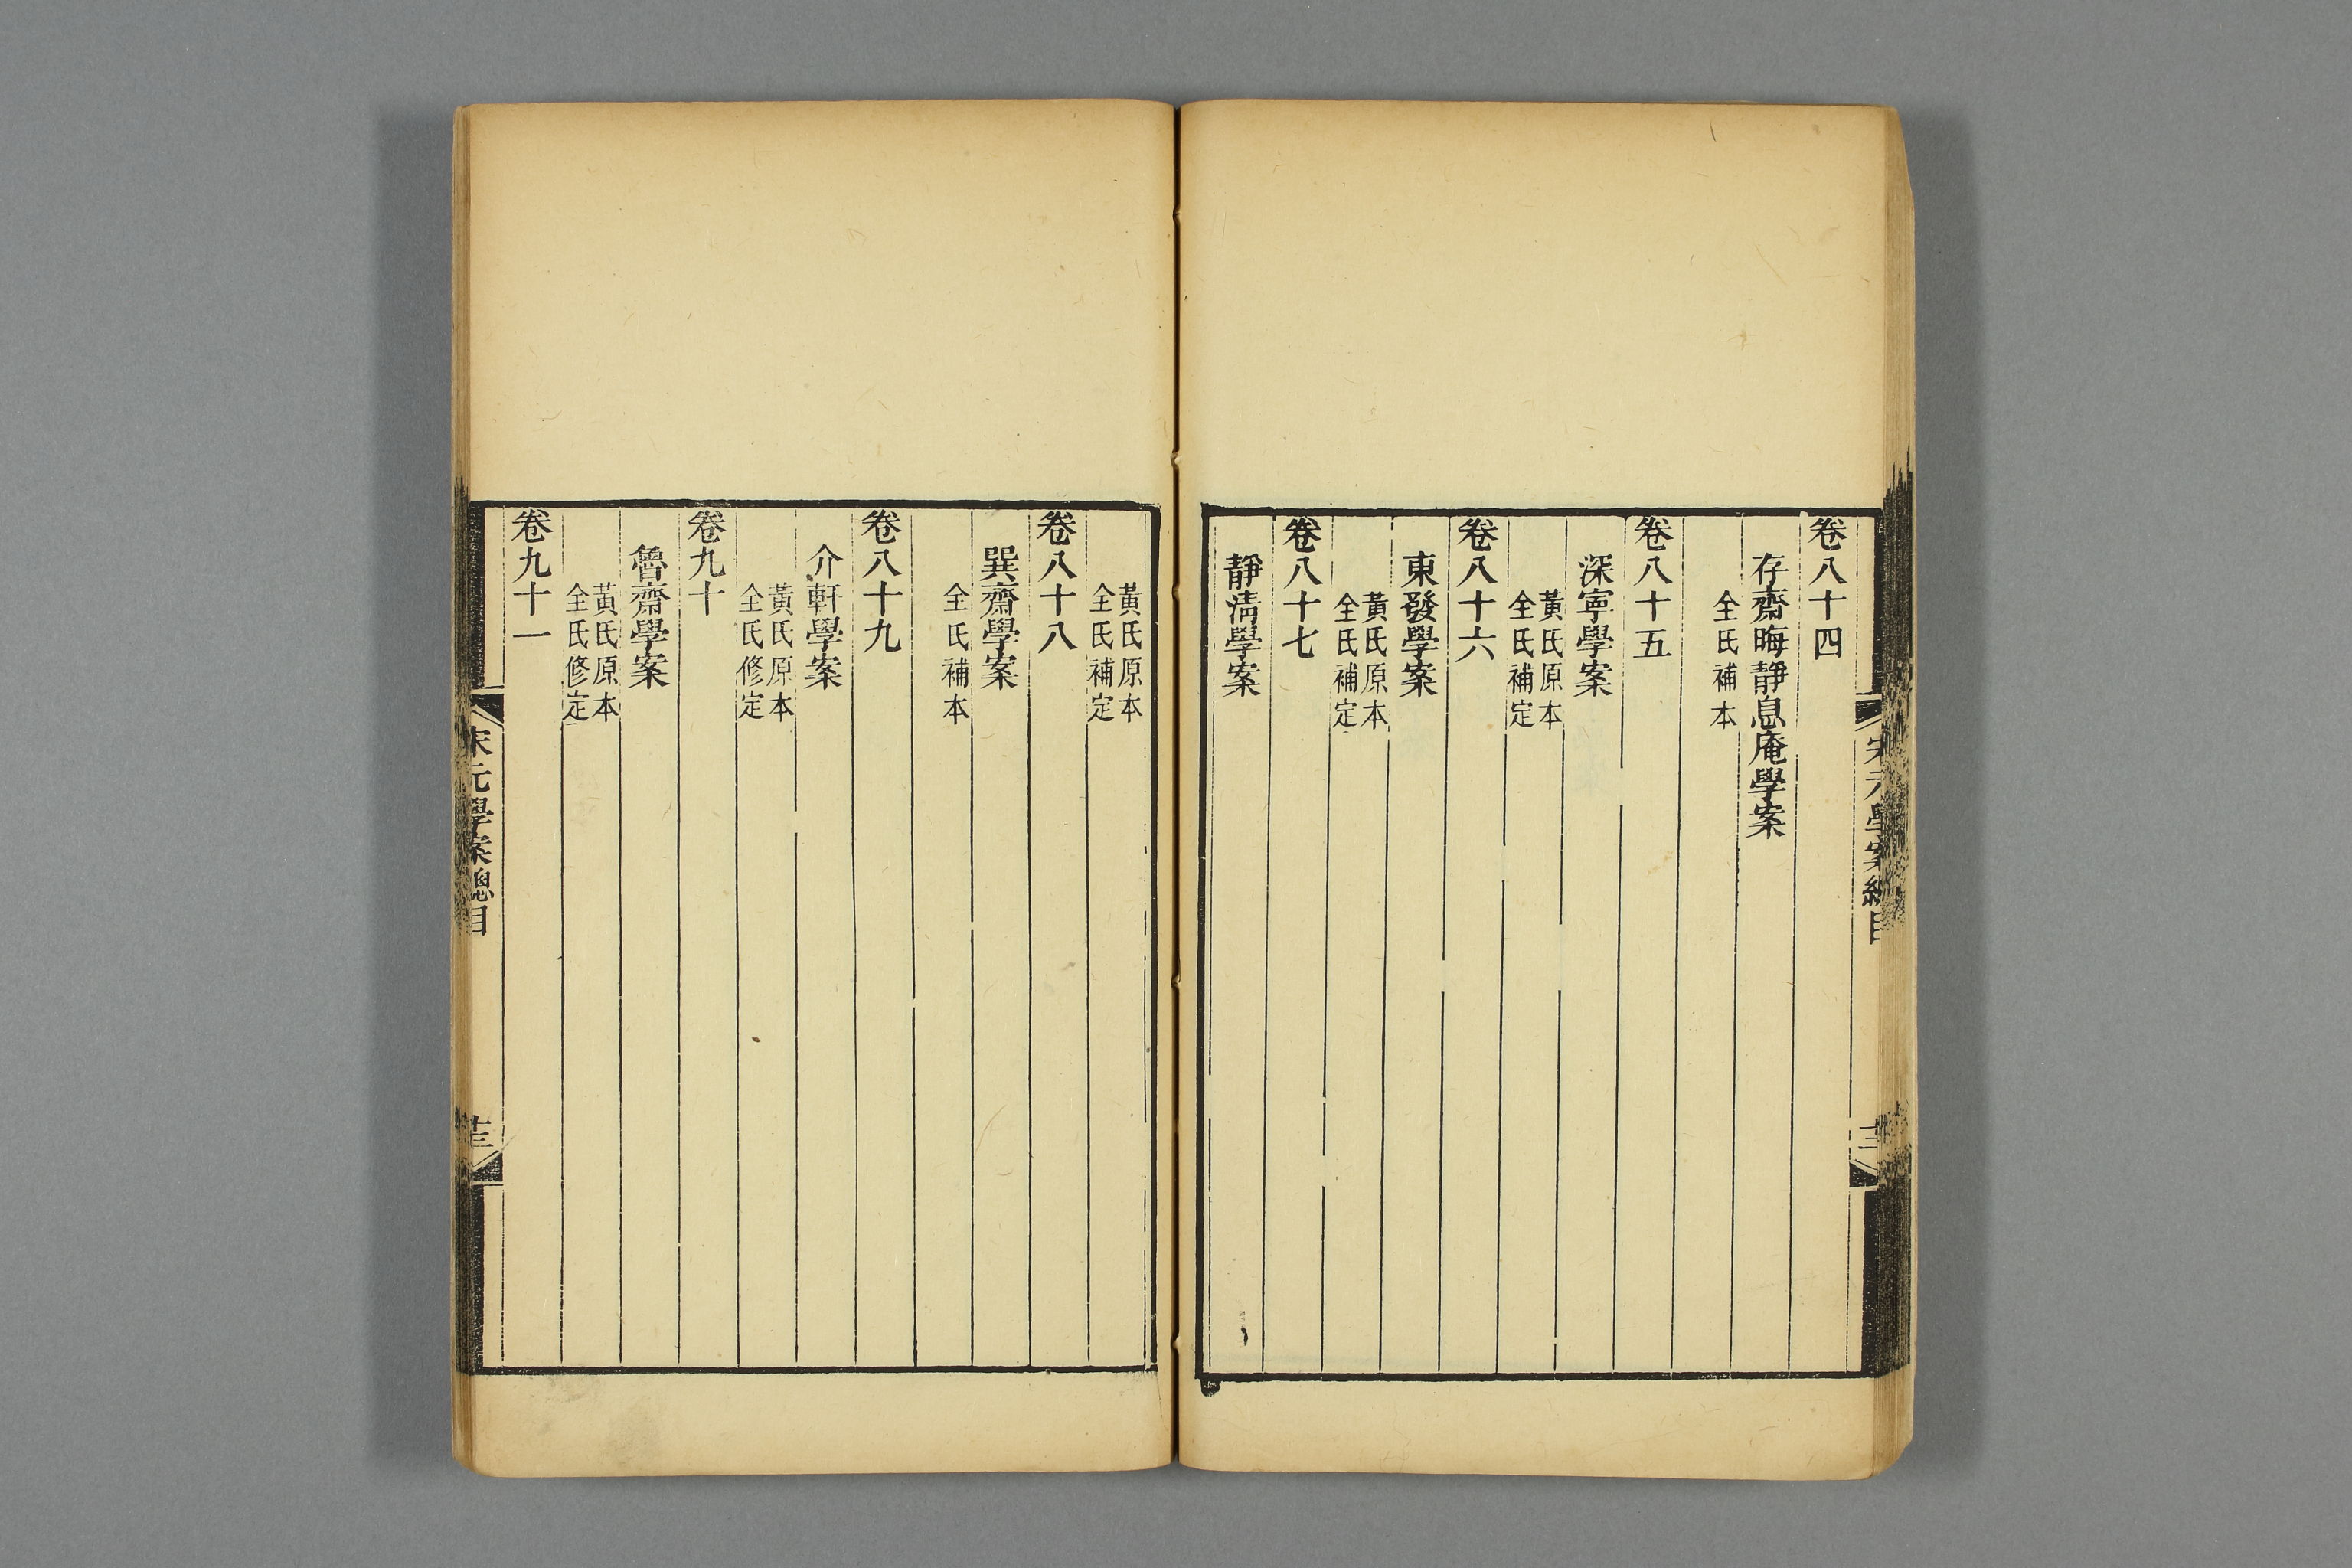 卷八十四
存齋晦靜息庵學案
全氏補本
卷八十五
深寧學案
黃氏原本
全氏補定
卷八十六
東發學案
黃氏原本
全氏補定
卷八十七
靜清學案
黃氏原本
全氏補定
卷八十八
巽齋學案
全氏補本
卷八十九
介軒學案
黃氏原本
全氏修定
卷九十
魯齋學案
黃氏原本
全氏修定
卷九十一
宋元學案總目